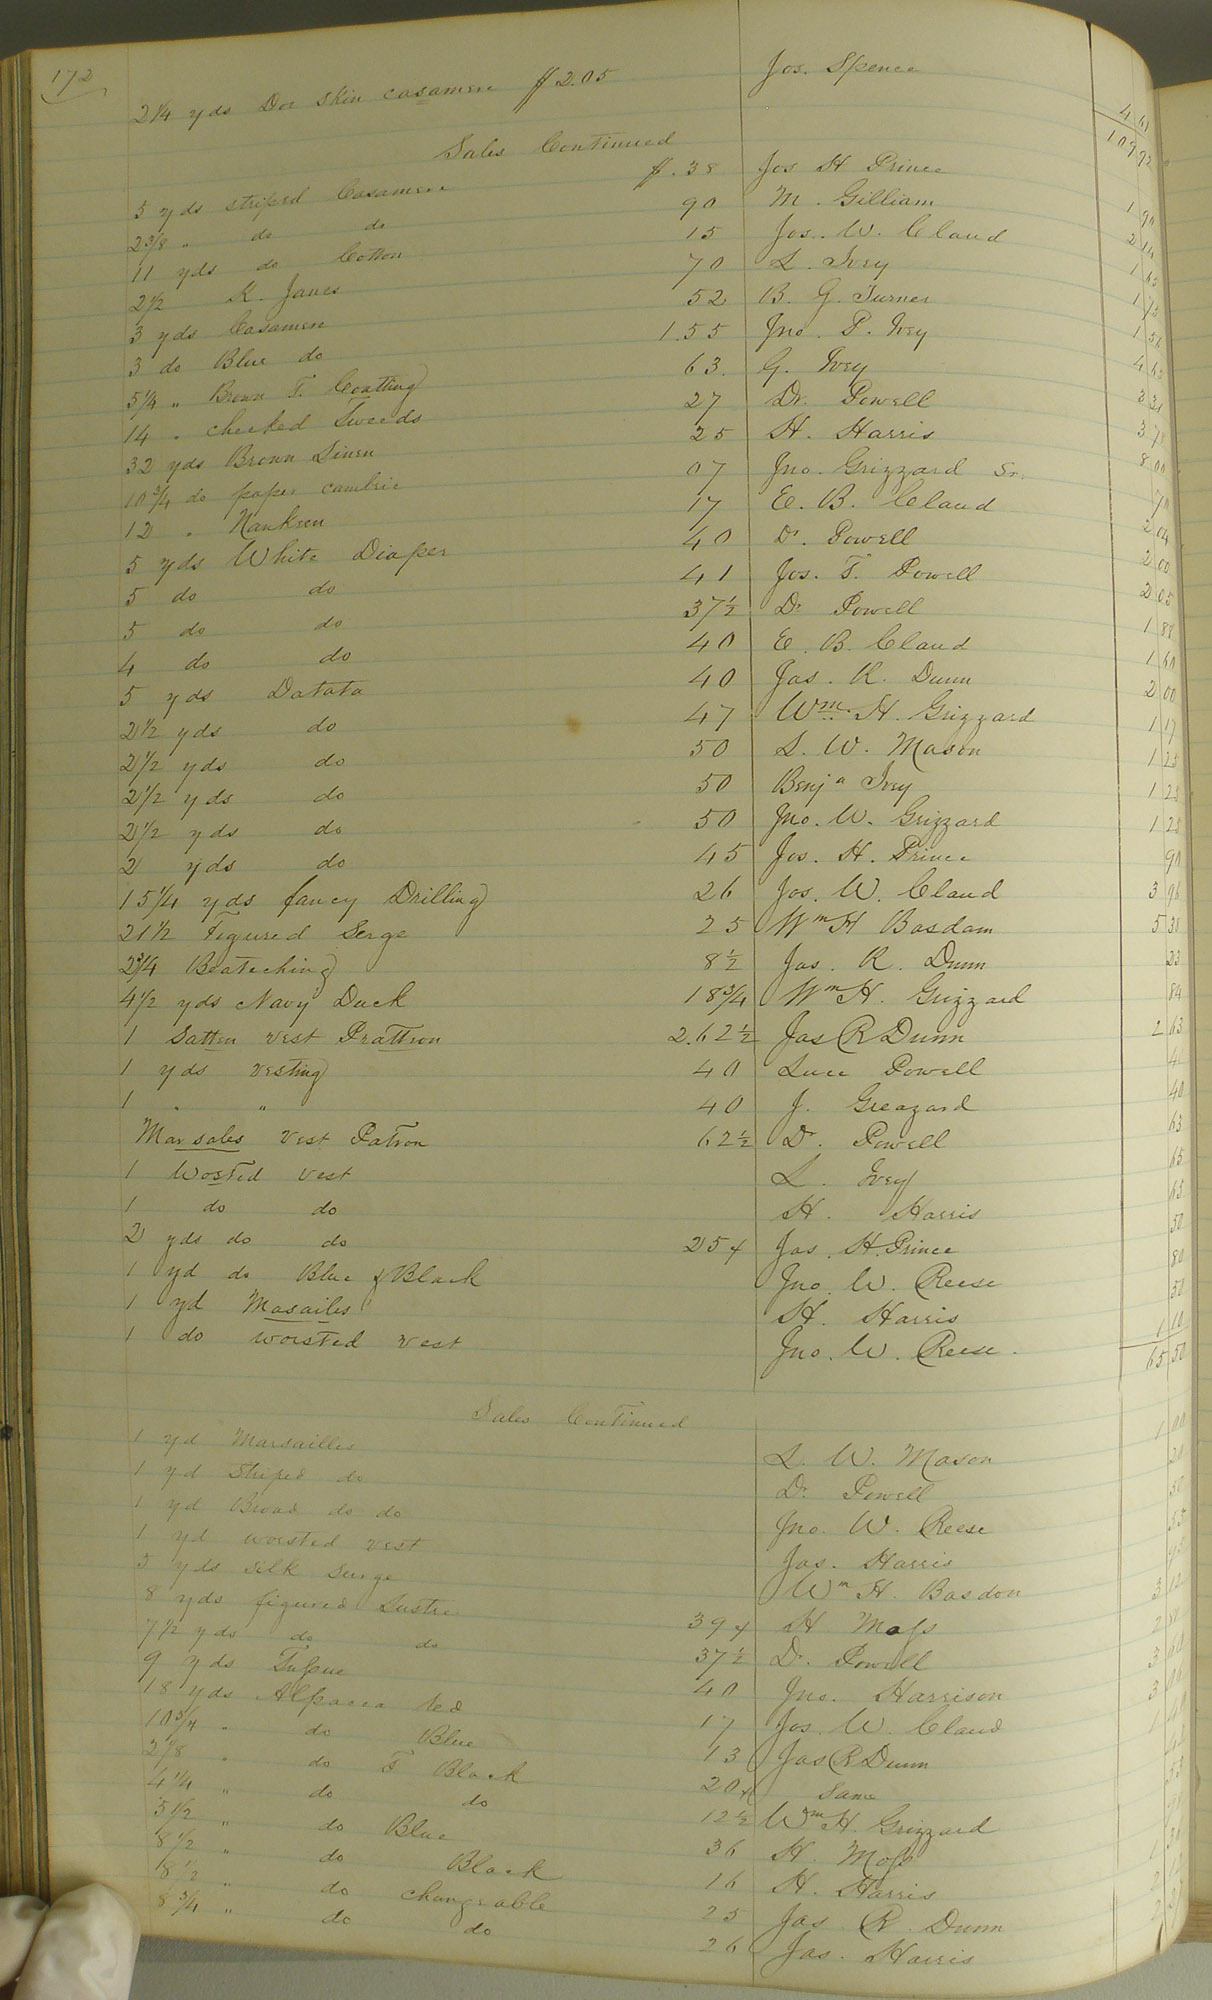 172
2 1/4 yds Doe Skin casamere $2.05 Jos. Spence 4 61
109 92
Sales Continued
5 yds striped Casamere $.38 Jos H Prince 1 90
2 3/8 " do do 90 M. Gilliam 2 14
11 yds do Cotton 15 Jos. W. Claud 1 65
2 1/2 K. Janes 70 L. Ivey 1 75
3 yds Casamere 52 B. G. Turner 1 56
3 do Blue do 1.55 Jno. P. Ivey 4 65
5 1/4 " Brown F. Coatting 63. G. Ivey 3 31
14 " checked Tweeds 27 Dr. Powell 3 78
32 yds Brown Linen 25 H. Harris 8 00
10 3/4 do paper cambric 07 Jno. Grizzard Sr.
12 " Nankeen 17 E. B. Claud 2 04
5 yds White Diaper 40 Dr. Powell 2 00
5 do do 41 Jos. T. Powell 2 05
5 do do 37 1/2 Dr Powell 1 88
4 do do 40 E. B. Claud 1 60
5 yds Datata 40 Jas. R. Dunn 2 00
2 1/2 yds do 47 Wm. H. Grizzard 1 17
2 1/2 yds do 50 L. W. Mason 1 25
2 1/2 yds do 50 Benja Ivey 1 25
2 1/2 yds do 50 Jno. W. Grizzard 1 25
2 yds do 45 Jos. H. Prince 90
15 1/4 yds fancy Drilling 26 Jos. W. Claud 3 96
21 1/2 Figured Serge 25 Wm H Basdam 5 38
2 3/4 Bleateching 8 1/2 Jas. R. Dunn 23
4 1/2 yds Navy Duck 18 3/4 Wm H. Grizzard 84
1 Satten vest Prattron 2.62 1/2 Jas R Dunn 2 63
1 yds vesting 40 Luce Powell
1 " " 40 J. Greazard 40
Marsales vest Patron 62 1/2 Dr. Powell 63
1 Wosted vest L. Ivey 65
1 do do H. Harris 65
2 yds do do 25 + Jas. H. Prince 50
1 yd do Blue & Black Jno. W. Reese 80
1 yd Masailes H. Harris 50
1 do worsted vest Jno. W. Reese. 1 10
65 50
Sales Continued
1 yd Marsailles L. W. Mason 1 00
1 yd Striped do Dr. Powell
1 yd Broad do do Jno. W. Reese 50
1 yd worsted vest Jas. Harris
5 yds silk Surge Wm H. Basdon 3
8 yds figured Lustre 39 + H Mass
7 1/2 yds do do 37 1/2 Dr. Powell
9 yds 40 Jno. Harrison 3
18 yds Alpacca Red 17 Jos. W. Claud
10 3/4 " do Blue 13 Jas R Dunn
2 7/8 " do F Black 20 + Same
4 1/4 " do do 12 1/2 Wm H. Grizzard
5 1/2 " do Blue 36 H. Mass
8 1/2 " do Black 16 H. Harris
18 1/2 " do changeable 25 Jas R. Dunn
8 3/4 " do do 26 Jas. Harris